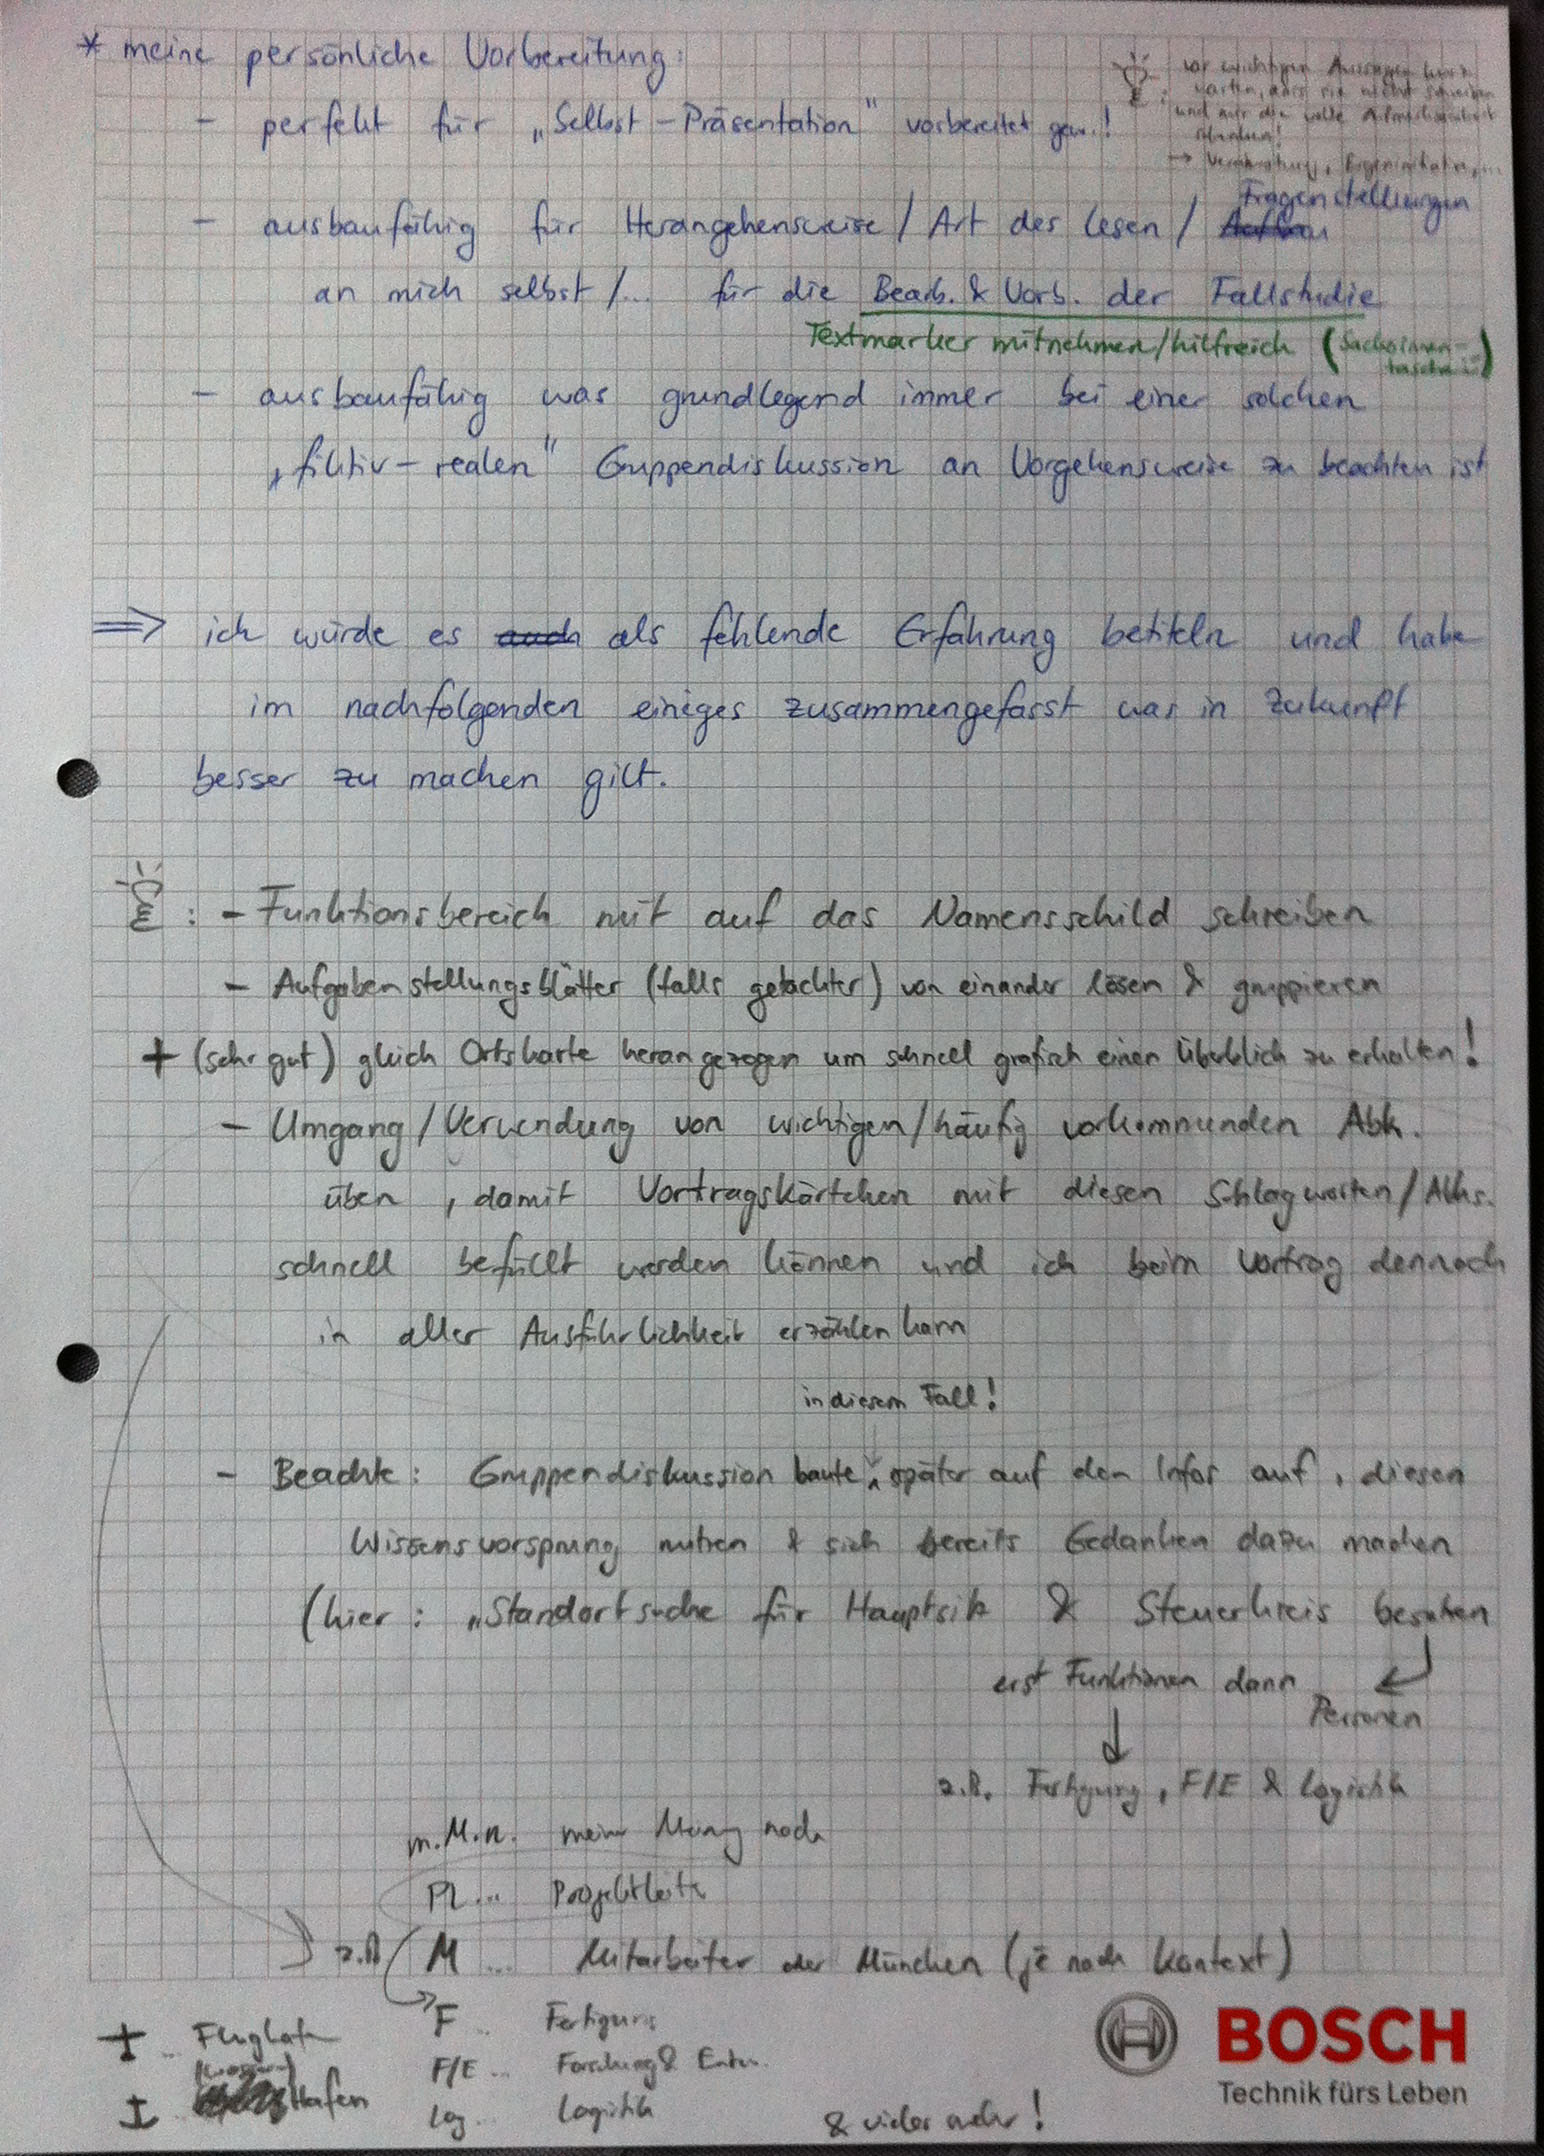 * meine persönliche Vorbereitung:
- perfekt für „Selbst-Präsentation" vorbereitet gew.!
vor wichtigen Aussagen kurz
warten, dass sie nicht schreiben
und mir die volle Aufmerksamkeit
schenken!
→ Verantwortung, Eigeninitiative, ...
- ausbaufähig für Herangehensweise / Art des Lesen / Fragenstellungen
an mich selbst /... für die Bearb. & Vorb. der Fallstudie
Textmarker mitnehmen/hilfreich (Sackoinnen-
tasche)
- ausbaufähig was grundlegend immer bei einer solchen
„fiktiv-realen" Gruppendiskussion an Vorgehensweise zu beachten ist
⇒ ich würde es auch als fehlende Erfahrung betiteln und habe
im nachfolgenden einiges zusammengefasst was in Zukunft
besser zu machen gilt.
: - Funktionsbereich mit auf das Namensschild schreiben
- Aufgabenstellungsblätter (falls getackter) von einander lösen & gruppieren
+ (sehr gut) gleich Ortskarte herangezogen um schnell grafisch einen Überblick zu erhalten!
- Umgang / Verwendung von wichtigen/häufig vorkommunden Abk.
üben, damit Vortragskärtchen mit diesen Schlagworten / Abks.
schnell befüllt werden können und ich beim Vortrag dennoch
in aller Ausführlichkeit erzählen kann
in diesem Fall!
- Beachte: Gruppendiskussion baute später auf den Infos auf, diesen
Wissensvorsprung nutzen & sich bereits Gedanken dazu machen
(hier: „Standortsuche für Hauptsitz & Steuerkreis besetzen
erst Funktionen dann Personen
z.B. Fertigung, F/E & Logistik
m.M.n. meiner Meinung nach
PL ... Projektleiter
z.B. M ... Mitarbeiter oder München (je nach Kontext)
F .. Fertigung
F/E ... Forschung & Entw.
Log ... Logistik
.. Flughafen
.. Hafen
& vieles mehr!
BOSCH
Technik fürs Leben